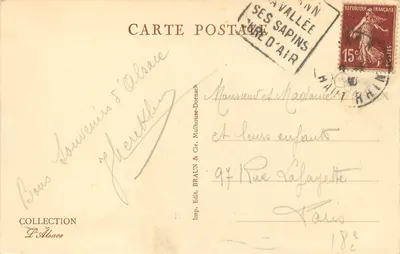 CARTE POSTALE
VALLÉE
SES SAPINS
D'AIR
REPUBLIQUE FRANÇAISE
15c
POSTES
HAUT RHIN
Bons Souvenirs d'Alsace
Monsieur et Madame
et leurs enfants
97 Rue Lafayette
Paris
18e
Imp. Edit. BRAUN & Cie, Mulhouse-Dornach
COLLECTION
L'Alsace